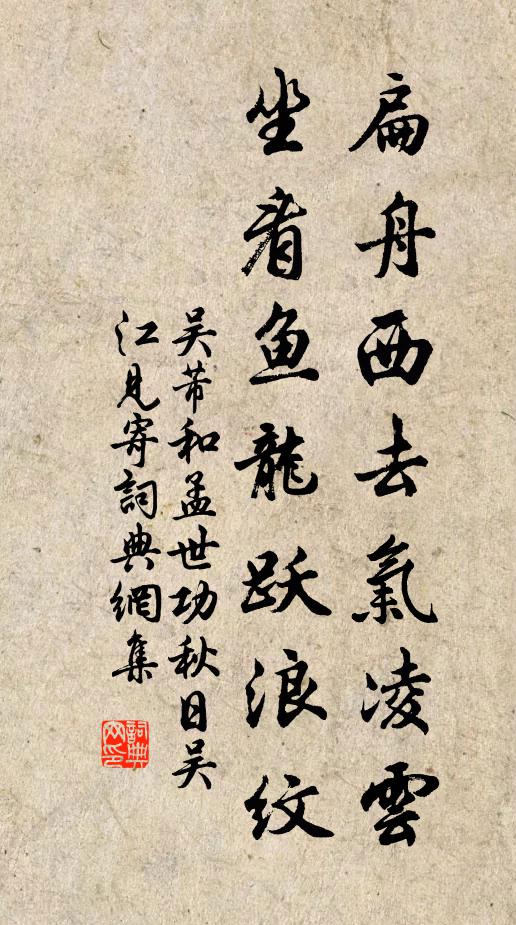 扁舟西去氣凌雲
坐看鱼龍跃浪紋
吴芾和孟世功秋日吴
江見寄詞典網集
詞典
网印